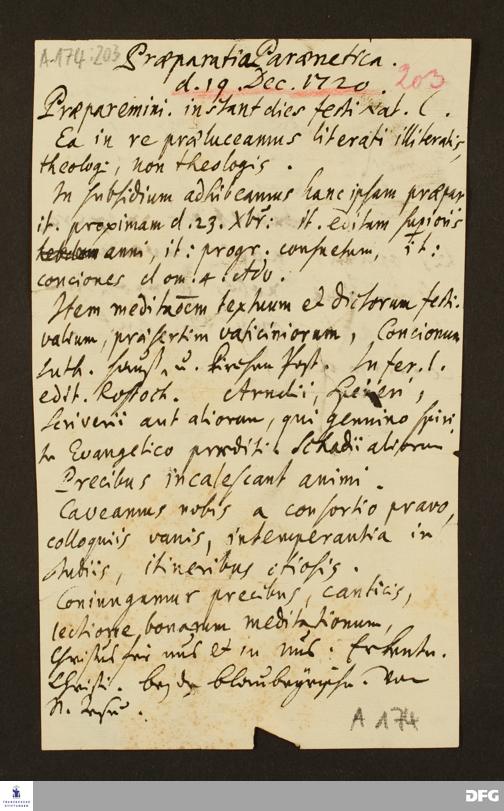 A 174:203
Præparatio Parænetica.
d. 19. Dec. 1720.
203
Præparemini. instant dies festi Nat. C.
Ea in re præluceamus literati illiteratis,
theologi, non theologis.
In subsidium adhibeamus hanc ipsam præpar
it. proximam d. 23. Xbr: it. editam superioris
anni, it: progr. consuetum, it:
conciones dom: 4. Adv.
Item meditãoem textuum et dictorum festi-
valium, præsertim vaticiniorum, Concionum
Luth. Haus- u. Kirchen Post. Infer. l.
edit. Rostoch. Arndii,
Scriverii aut aliorum, qui genuino spiri
tu Evangelico præditi. Schadii aliorum.
Precibus incalescant animi.
Caveamus nobis a consortio pravo,
colloquiis vanis, intemperantia in
studiis, itineribus otiosis.
Coniungamur precibus, canticis,
lectione, bonarum meditationum,
Christus sei
Christi. bey der
A 174
FRANCKESCHE
STIFTUNGEN
DFG